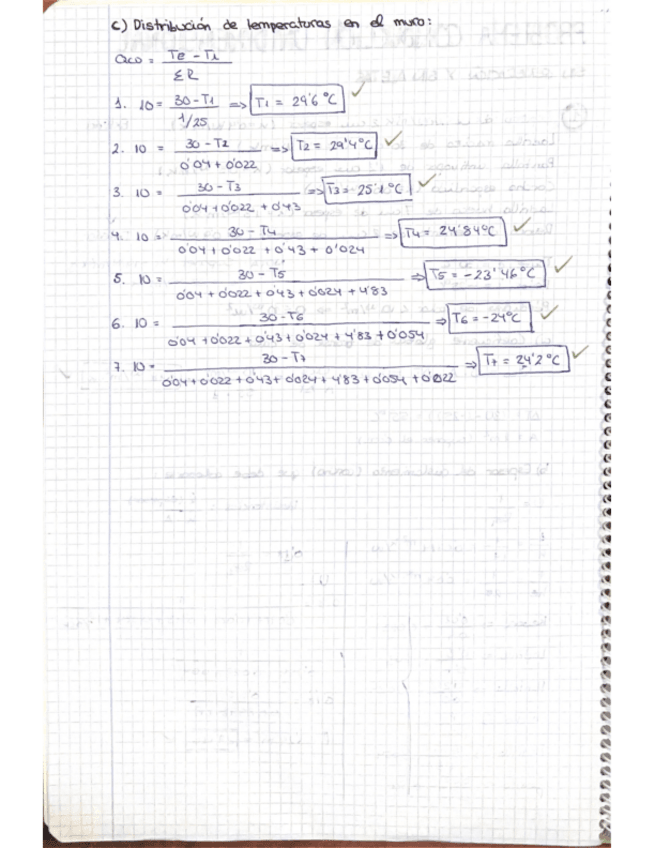 c) Distribución de temperaturas en el muro:
Qco = Te - Ti / ΣR
1. 10 = 30 - T1 / 1/25 => T1 = 29'6 °C ✓
2. 10 = 30 - T2 / 0'04 + 0'022 => T2 = 29'4 °C ✓
3. 10 = 30 - T3 / 0'04 + 0'022 + 0'43 => T3 = 25'1 °C ✓
4. 10 = 30 - T4 / 0'04 + 0'022 + 0'43 + 0'024 => T4 = 24'84 °C ✓
5. 10 = 30 - T5 / 0'04 + 0'022 + 0'43 + 0'024 + 4'83 => T5 = -23'46 °C ✓
6. 10 = 30 - T6 / 0'04 + 0'022 + 0'43 + 0'024 + 4'83 + 0'054 => T6 = -24 °C ✓
7. 10 = 30 - T7 / 0'04 + 0'022 + 0'43 + 0'024 + 4'83 + 0'054 + 0'022 => T7 = 24'2 °C ✓